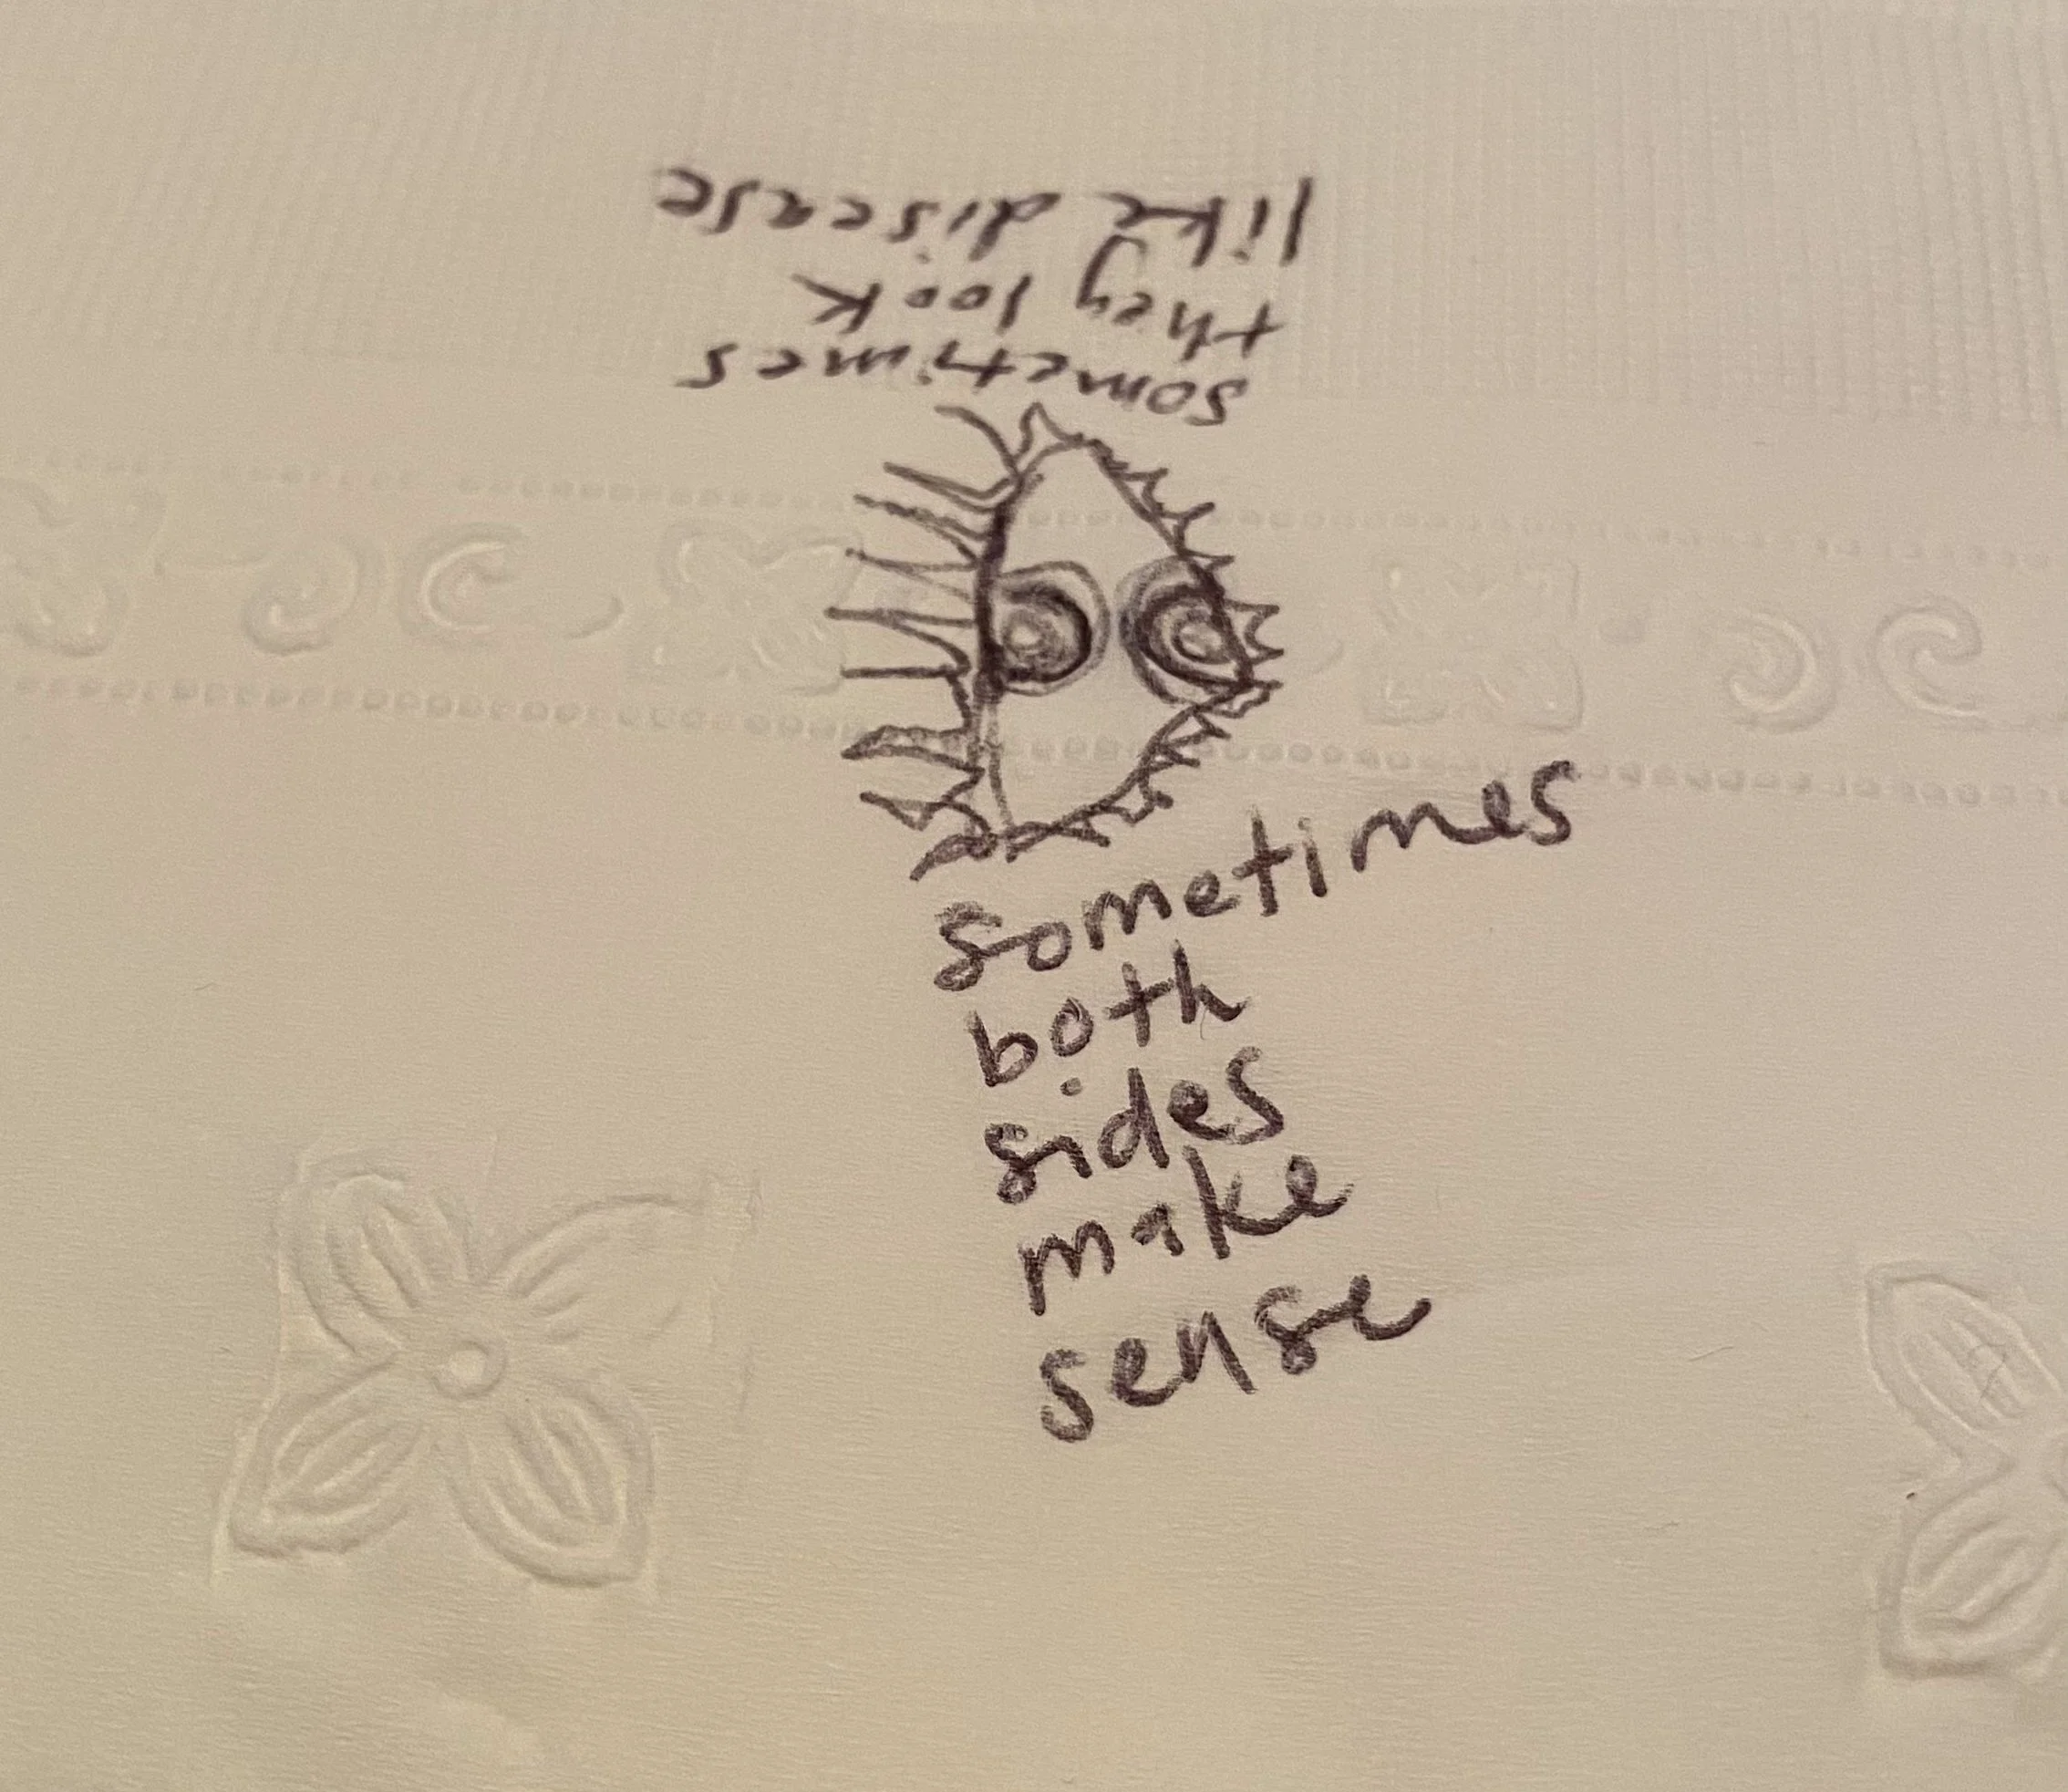 sometimes
they look
like disease
sometimes
both
sides
make
sense